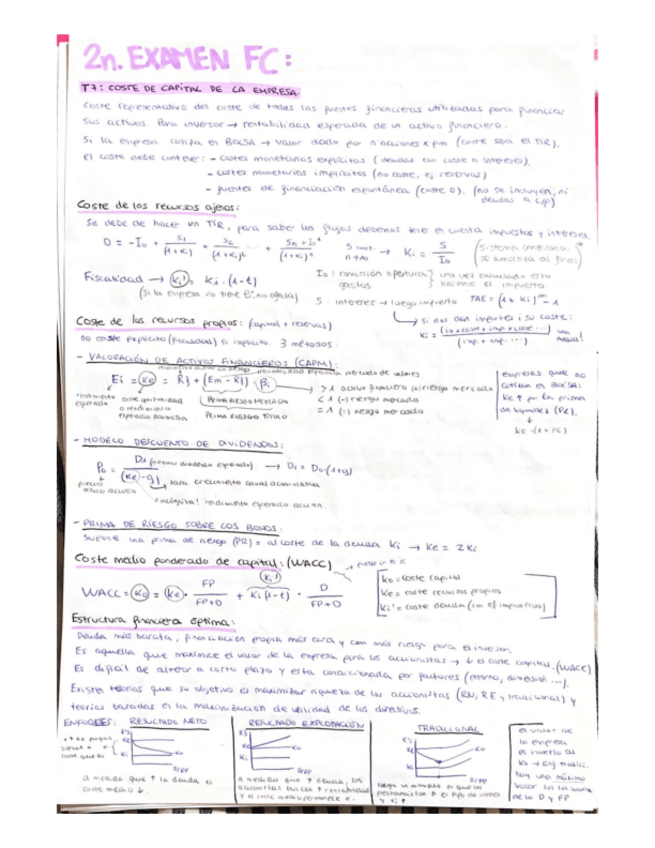 2n. EXAMEN FC:
T7: COSTE DE CAPITAL DE LA EMPRESA.
Coste representativo del coste de todas las fuentes financieras utilizadas para financiar
sus activos. Para inversor → rentabilidad esperada de un activo financiero.
Si la empresa cotiza en BOLSA → valor dado por nº acciones x pm (coste sera el TIR).
el coste debe contener: - costes monetarios explícitos (deudas con coste o intereses).
- costes monetarios implícitos (no coste, ej. reservas)
- fuentes de financiación espontánea (coste 0). (no se incluyen, ni
deudas a c/p)
Coste de los recursos ajenos:
Se debe de hacer un TIR, para saber los flujos debemos tener en cuenta impuestos y intereses.
0 = -I0 + S1/(1+Ki) + S2/(1+Ki)² ... + Sn + I0/(1+Ki)ⁿ
S const. n→∞ → Ki = S/I0
(sistema americano: se amortiza al final)
Fiscalidad → Ki' = Ki · (1-t)
(si la empresa no tiene Bº, no afecta)
I0: comisión apertura gastos } una vez calculado esto hacemos el impuesto.
S: intereses → luego impuesto TAE = (1 + Ki)ᵐ - 1
si nos dan importes i su coste:
Coste de los recursos propios: (capital + reservas)
no coste explícito si implícito. 3 métodos:
- VALORACIÓN DE ACTIVOS FINANCIEROS (CAPM):
Ei = Ke = Rf + (Em - Rf) βi
> 1 activo financiero riesgo mercado
< 1 (-) riesgo mercado
= 1 (=) riesgo mercado
rendimiento esperado
coste oportunidad o rendimiento esperado accionista
PRIMA RIESGO MERCADO
PRIMA RIESGO TÍTULO
empresas que no
cotizan en Bolsa:
Ke ↑ por la prima
de liquidez (PL).
↓
- MODELO DESCUENTO DE DIVIDENDOS:
P0 = D1 (próximo dividendo esperado)/(Ke - g) → D1 = D0·(1+g)
precio
tasa crecimiento anual acumulativa
incógnita! rendimiento esperado accion.
- PRIMA DE RIESGO SOBRE LOS BONOS:
Supone una prima de riesgo (PR) = al coste de la deuda Ki → Ke = 2Ki
Coste medio ponderado de capital: (WACC)
WACC = K0 = Ke · FP/FP+D + Ki(1-t) · D/FP+D
(Ki')
K0 = coste capital
Ke = coste recursos propios
Ki' = coste deuda (con ef impositivo)
Estructura financiera óptima:
Deuda más barata, financiación propia más cara y con más riesgo para el inversor.
Es aquella que maximice el valor de la empresa para los accionistas → ↓ el coste capital. (WACC)
Es dificil de alterar a corto plazo y esta condicionada por factores (entorno, dimensión ...).
Existen teorías que su objetivo es maximizar riqueza de los accionistas (RN, RE, tradicional) y
teorías basadas en la maximización de utilidad de los directivos.
ENFOQUES:
RESULTADO NETO
K's
Ke
Ki
K0
D/FP
a medida que ↑ la deuda el
coste medio ↓.
RESULTADO EXPLOTACIÓN
K's
Ke
K0
Ki
D/FP
a medida que ↑ deuda, los
accionistas buscan ↑ rentabilidad
y el coste medio permanece =.
TRADICIONAL
K's
Ke
Ki
D/FP
llega un momento en que los
el valor de
la empresa
es inverso al
K0
hay una máximo
valor con la
de la D y FP